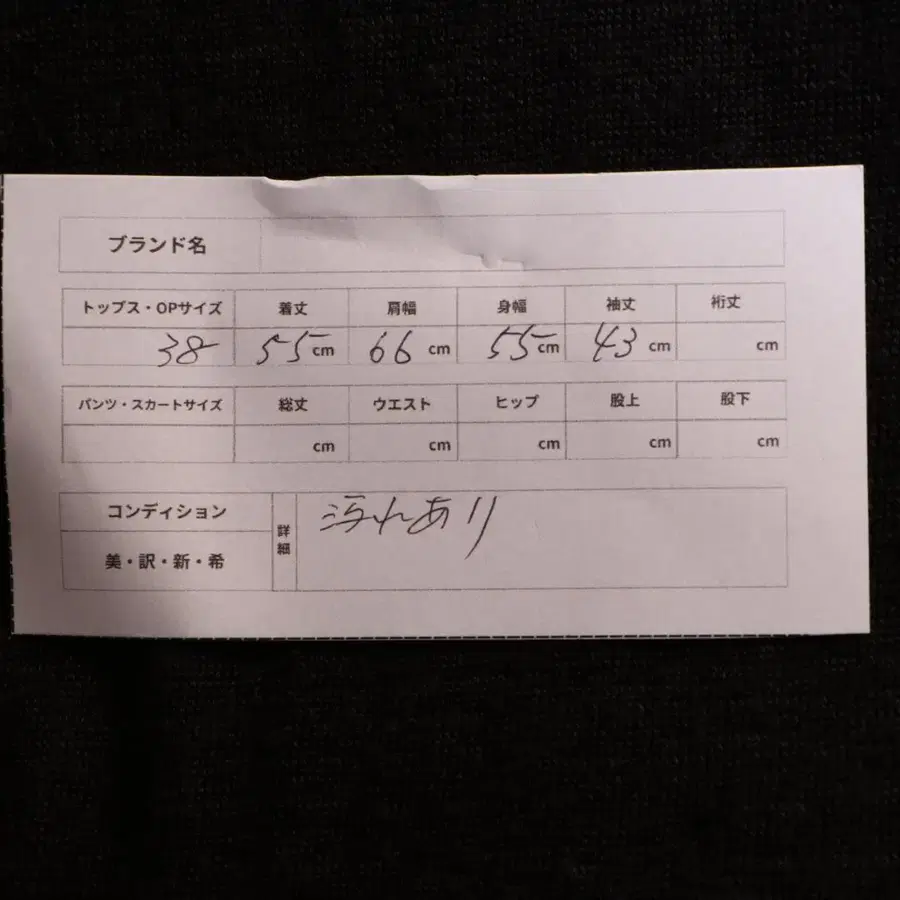 ブランド名
トップス・OPサイズ 着丈 肩幅 身幅 袖丈 裄丈
38 55 cm 66 cm 55 cm 43 cm cm
パンツ・スカートサイズ 総丈 ウエスト ヒップ 股上 股下
cm cm cm cm cm
コンディション 詳細 汚れあり
美・訳・新・希